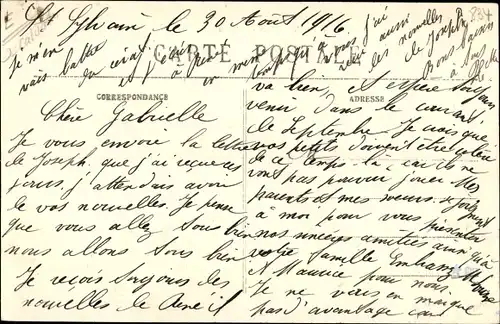 St Sylvain le 30 Août 1916
CARTE POSTALE
CORRESPONDANCE
ADRESSE
Chère Gabrielle
Je vous envoie la lettre
de Joseph que j'ai reçue ces
jours, j'attendais avoir
de vos nouvelles. Je pense
que vous allez tous bien
nous allons tous bien
Je reçois toujours des
nouvelles de René il
va bien, et espère toujours
venir dans le courant
de Septembre. Je crois que
vos petits doivent être
de ce temps-là car ils ne
vont pas pouvoir jouer. Mes
parents et mes sœurs se joignent
à moi pour vous présenter
nos sincères amitiés ainsi qu'à
votre famille Embrassez
et Maurice pour nous.
Je ne vous en marque
pas d'avantage car
Je m'en
vais battre
j'ai
aussi
des nouvelles
de Joseph
Bons baisers
à tous